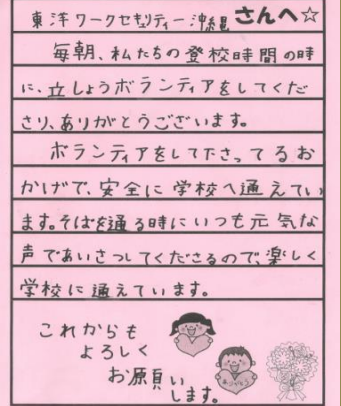 東洋ワークセキュリティー沖縄さんへ☆
毎朝、私たちの登校時間の時
に、立しょうボランティアをしてくだ
さり、ありがとうございます。
ボランティアをして下さってるお
かげで、安全に学校へ通えてい
ます。そばを通る時にいつも元気な
声であいさつしてくださるので、楽しく
学校に通えています。
これからも
よろしく
お願い
します。
ありがとう